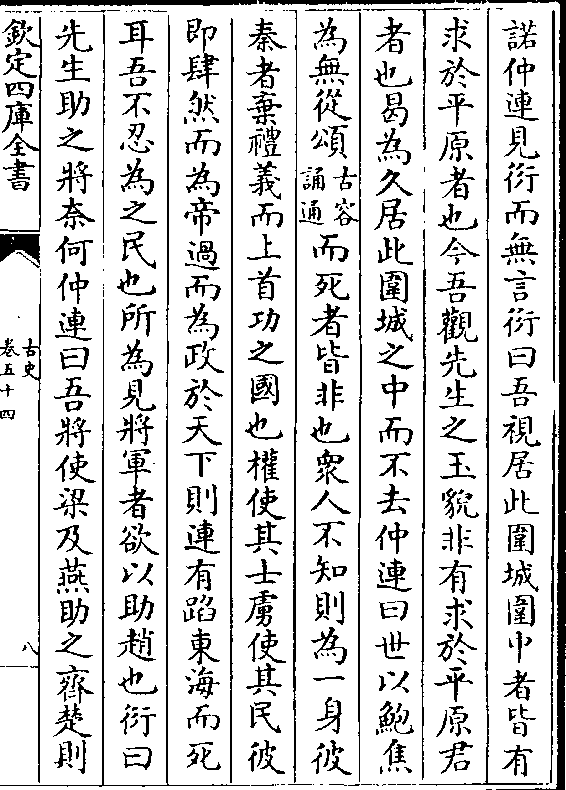 諾仲連見衍而無言衍曰吾視居此圍城圍中者皆有
求於平原者也今吾觀先生之玉貌非有求於平原君
者也曷為久居此圍城之中而不去仲連曰世以鮑焦
為無從頌古容誦通而死者皆非也衆人不知則為一身彼
秦者棄禮義而上首功之國也權使其士虜使其民彼
即肆然而為帝過而為政於天下則連有蹈東海而死
耳吾不忍為之民也所為見將軍者欲以助趙也衍曰
先生助之將奈何仲連曰吾將使梁及燕助之齊楚則
欽定四庫全書
古史
卷五十四
八